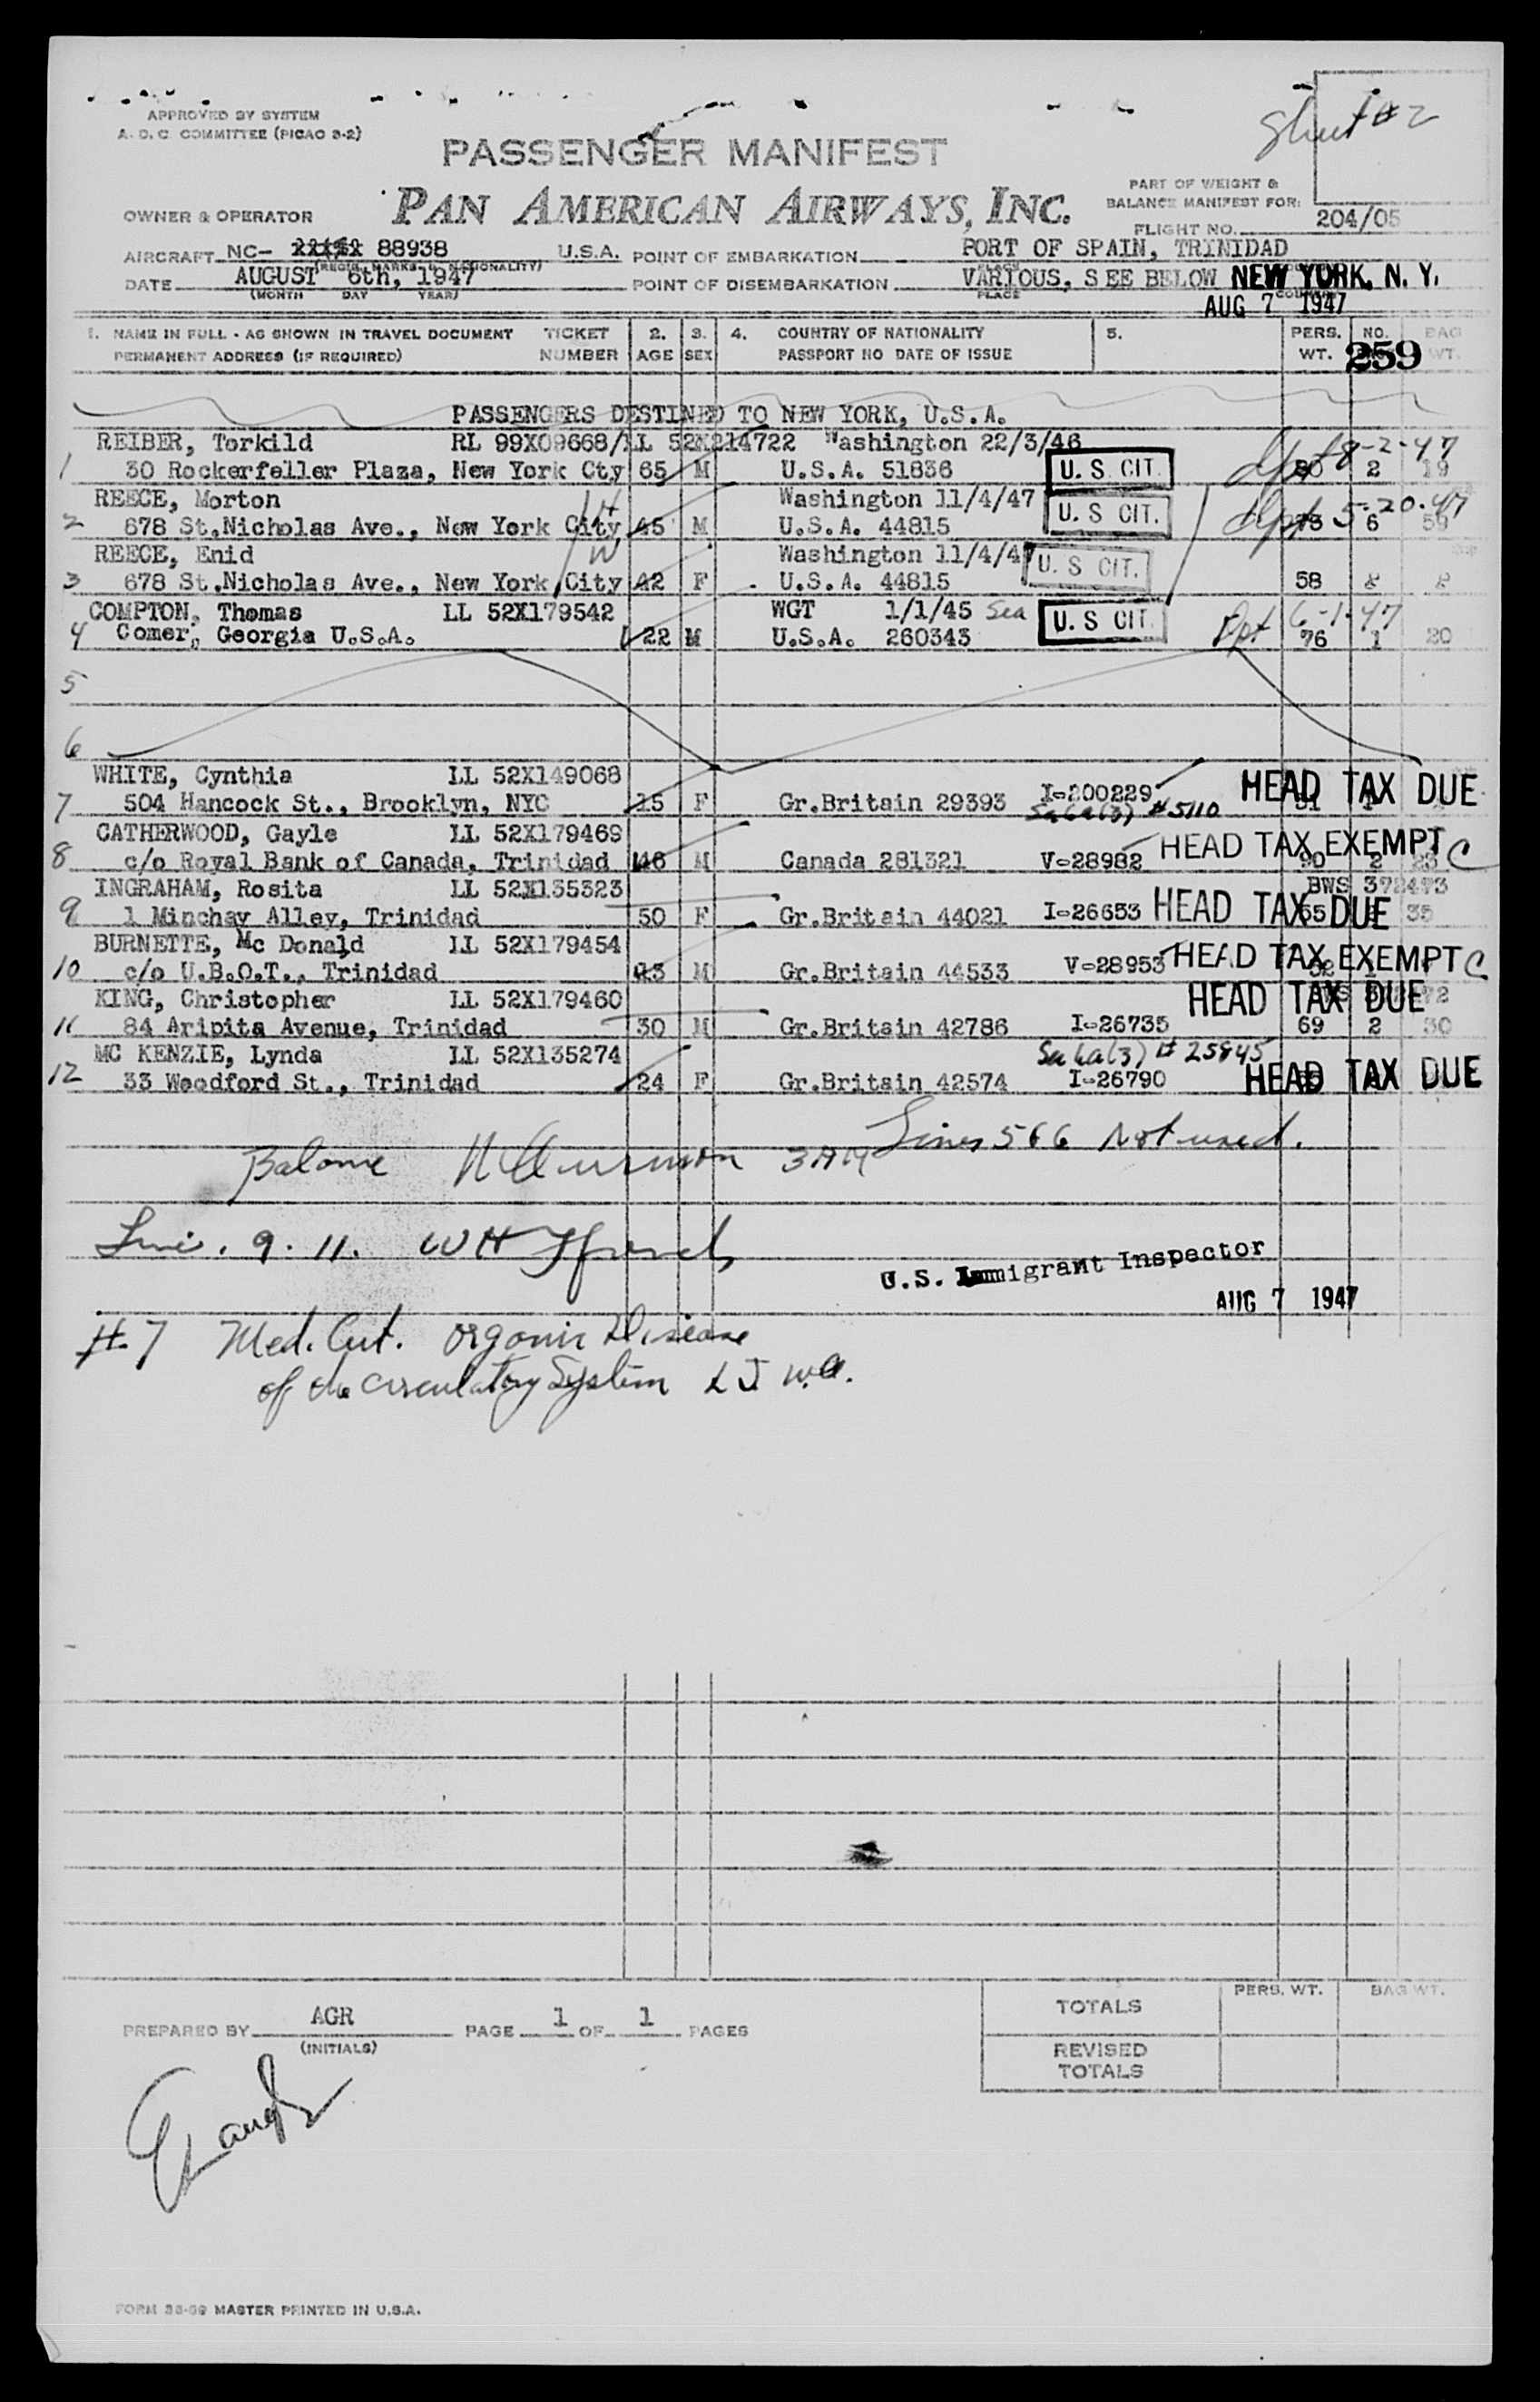 APPROVED BY SYSTEM
A. O. C. COMMITTEE (PICAO 3-2)
PASSENGER MANIFEST
PAN AMERICAN AIRWAYS, INC.
PART OF WEIGHT &
BALANCE MANIFEST FOR:
OWNER & OPERATOR
FLIGHT NO. 204/05
AIRCRAFT NC- 88938 U.S.A. POINT OF EMBARKATION PORT OF SPAIN, TRINIDAD
DATE AUGUST 6th, 1947 POINT OF DISEMBARKATION VARIOUS, SEE BELOW NEW YORK, N. Y.
(MONTH DAY YEAR) PLACE
AUG 7 1947
1. NAME IN FULL - AS SHOWN IN TRAVEL DOCUMENT TICKET 2. 3. 4. COUNTRY OF NATIONALITY 5. PERS. NO. BAG
PERMANENT ADDRESS (IF REQUIRED) NUMBER AGE SEX PASSPORT NO DATE OF ISSUE WT. 259 WT.
PASSENGERS DESTINED TO NEW YORK, U.S.A.
REIBER, Torkild RL 99X09668/LL 52X214722 Washington 22/3/46 8-2-47
1 30 Rockerfeller Plaza, New York Cty 65 M U.S.A. 51836 U. S. CIT. 2 19
REECE, Morton Washington 11/4/47
2 678 St.Nicholas Ave., New York City 45 M U.S.A. 44815 U. S CIT. 5-20-47 6
REECE, Enid W Washington 11/4/47
3 678 St.Nicholas Ave., New York City 42 F U.S.A. 44815 U. S CIT. 58
COMPTON, Thomas LL 52X179542 WGT 1/1/45 Sea 6-1-47
4 Comer, Georgia U.S.A. 22 M U.S.A. 260343 U. S CIT. Dpt 76 1 20
5
6
WHITE, Cynthia LL 52X149068 I-200229 HEAD TAX DUE
7 504 Hancock St., Brooklyn, NYC 15 F Gr.Britain 29393 #5110
CATHERWOOD, Gayle LL 52X179469 HEAD TAX EXEMPT C
8 c/o Royal Bank of Canada, Trinidad 46 M Canada 281321 V-28982 2
INGRAHAM, Rosita LL 52X135323 BWS 372473
9 1 Minchav Alley, Trinidad 50 F Gr.Britain 44021 I-26653 HEAD TAX DUE 35
BURNETTE, Mc Donald LL 52X179454 HEAD TAX EXEMPT C
10 c/o U.B.O.T., Trinidad M Gr.Britain 44533 V-28953
KING, Christopher LL 52X179460 HEAD TAX DUE
11 84 Aripita Avenue, Trinidad 30 M Gr.Britain 42786 I-26735 69 2 30
MC KENZIE, Lynda LL 52X135274 # 25845
12 33 Woodford St., Trinidad 24 F Gr.Britain 42574 I-26790 HEAD TAX DUE
Lines 5 & 6 Not used.
9. 11.
U.S. Immigrant Inspector
AUG 7 1947
#7 Med. Cert. Organic Disease
of the circulatory System
TOTALS PERS. WT. BAG WT.
REVISED
TOTALS
PREPARED BY AGR PAGE 1 OF 1 PAGES
(INITIALS)
FORM 38-69 MASTER PRINTED IN U.S.A.